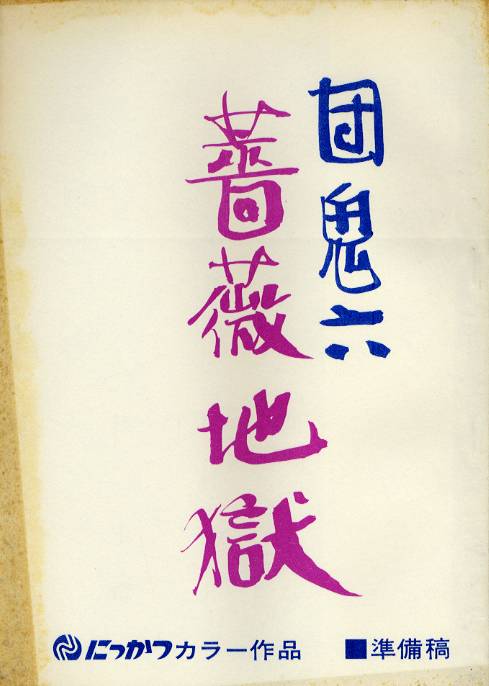 団鬼六
薔薇地獄
にっかつカラー作品 ■準備稿